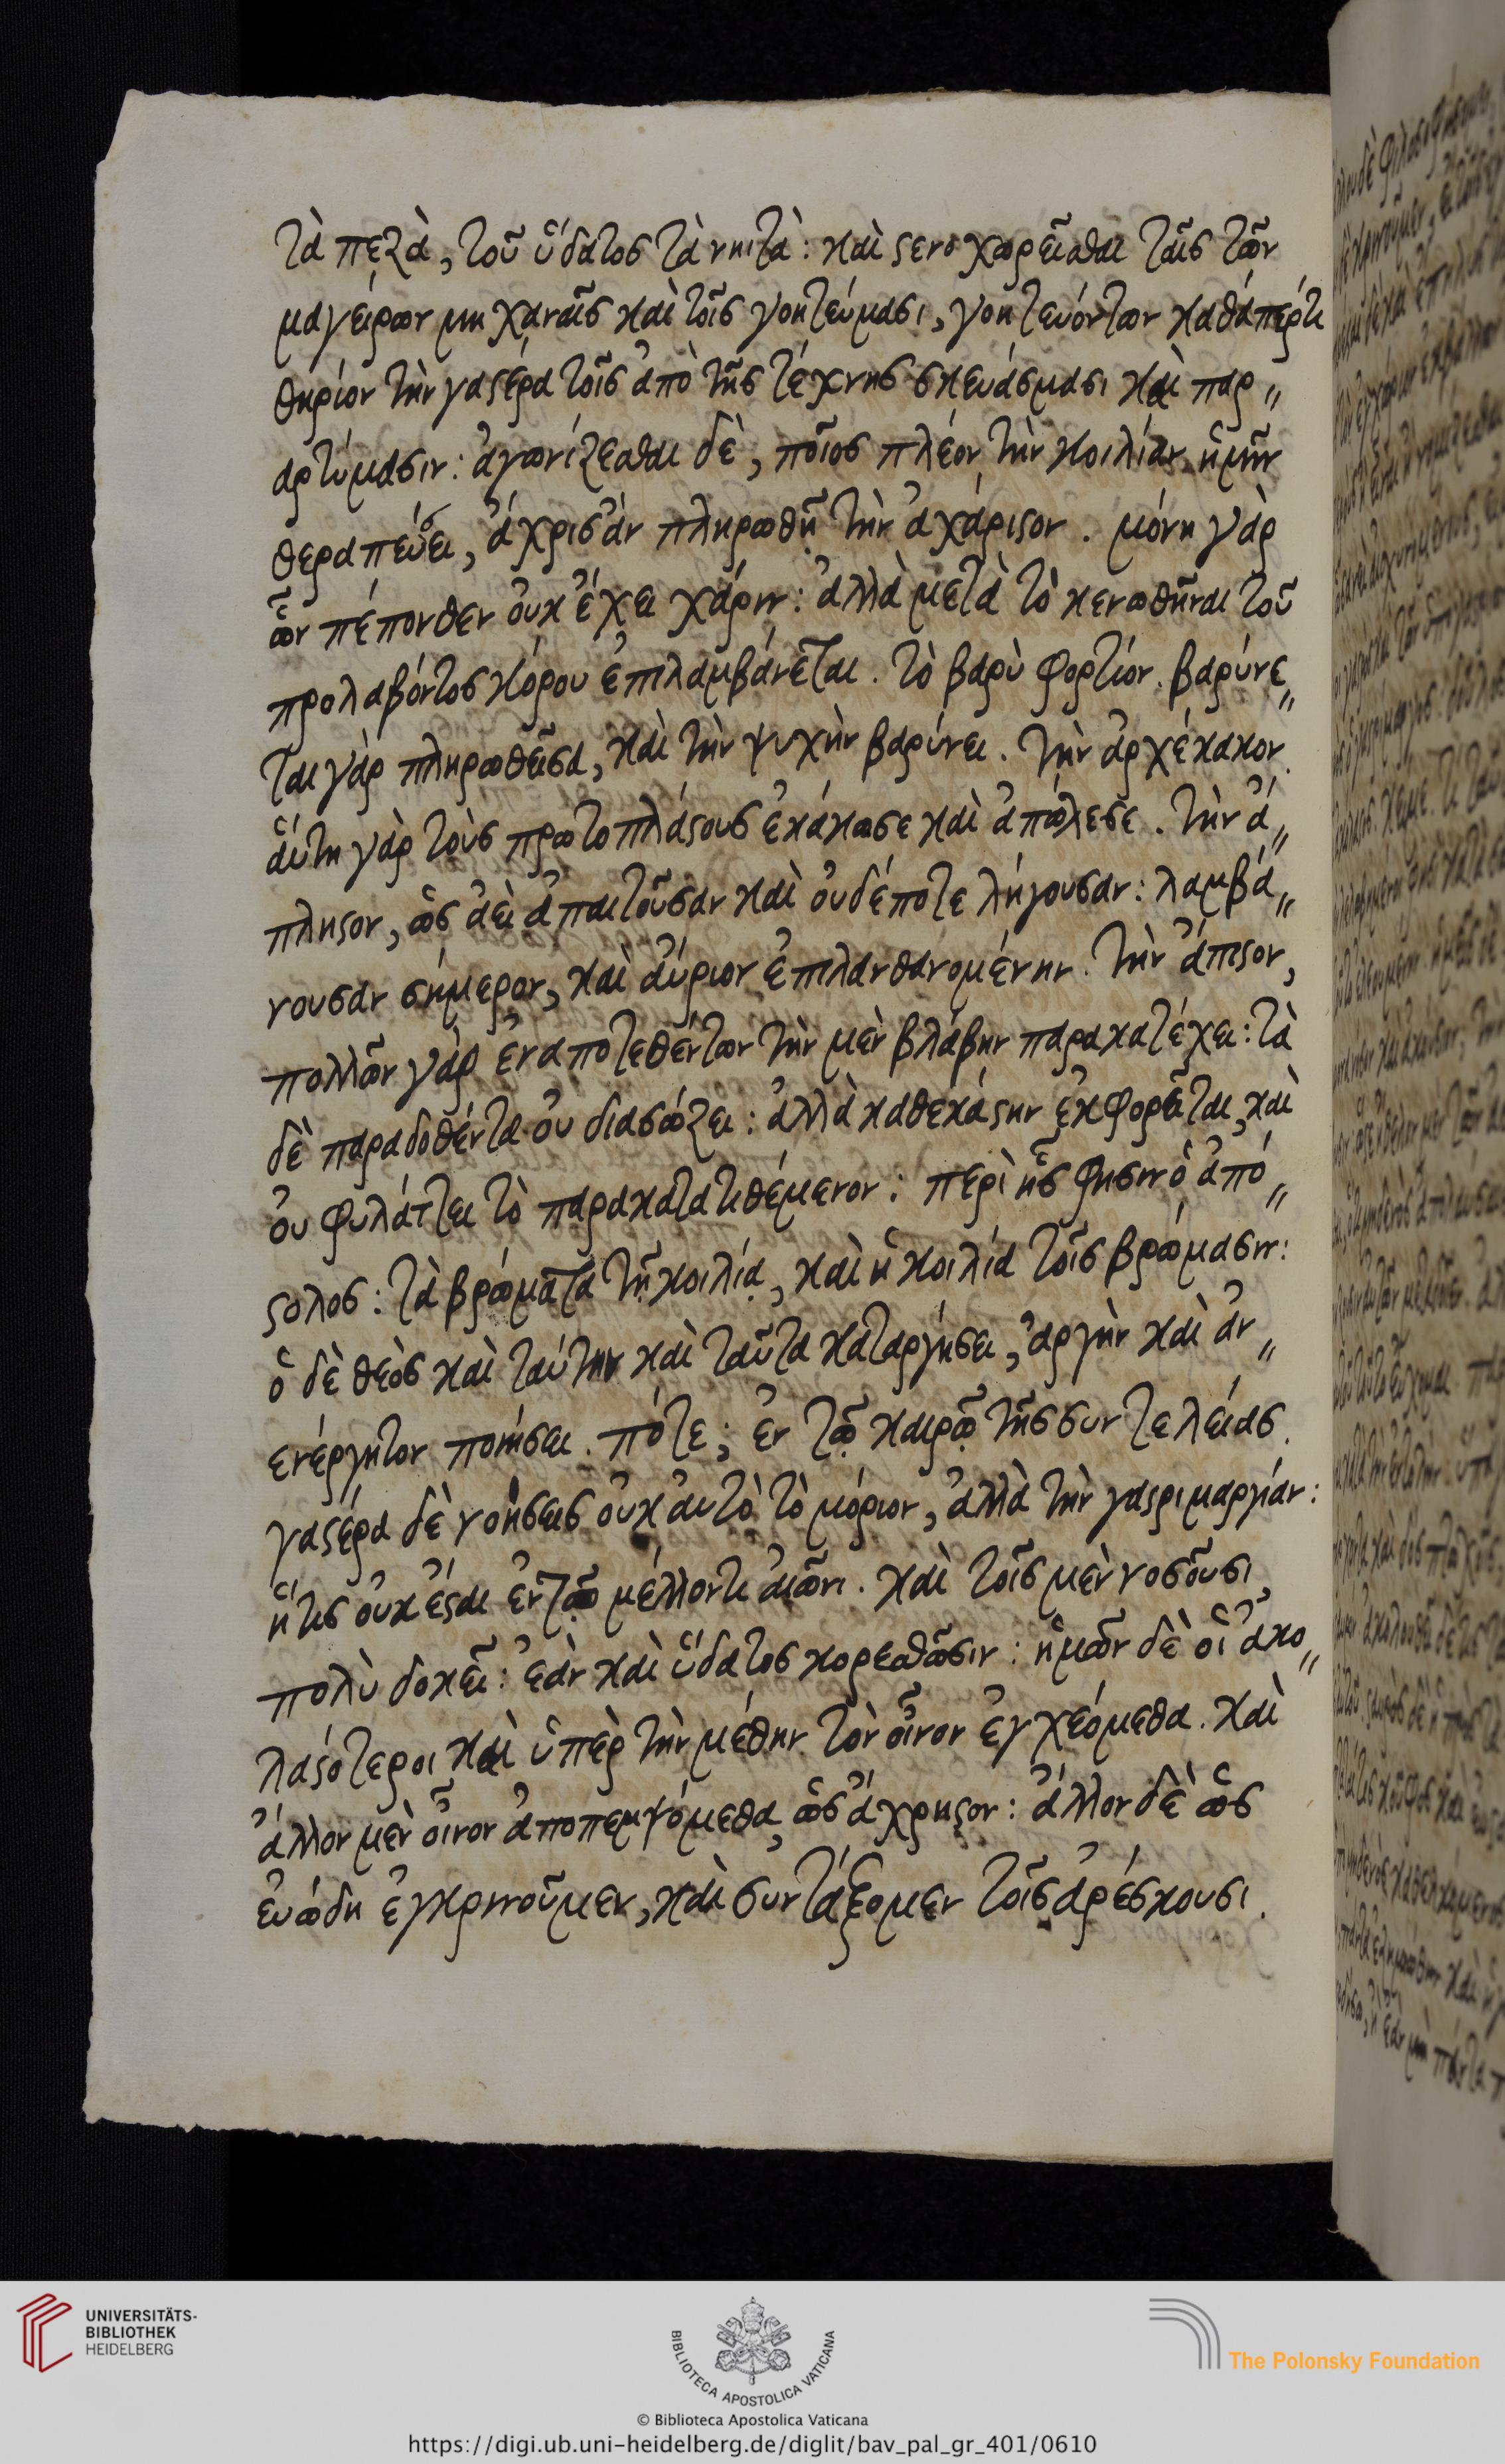 τὰ πεζὰ, τοῦ ὕδατος τὰ νηκτὰ: καὶ στενοχωρεῖσθαι ταῖς τῶν
μαγείρων μηχαναῖς καὶ τοῖς γοητεύμασι, γοητευόντων καθάπέρ τι
θηρίον τὴν γαστέρα τοῖς ἀπὸ τῆς τέχνης σκευάσμασι καὶ παρ〃
αρτύμασιν: ἀγωνίζεσθαι δὲ, ποῖος πλέον τὴν κοιλίαν ἡμῖν
θεραπεύσει, ἄχρις ἂν πληρωθῇ τὴν ἀχάριστον. μόνη γὰρ
ὧν πέπονθεν οὐκ ἔχει χάριν: ἀλλὰ μετὰ τὸ κενωθῆναι τοῦ
προλαβόντος κόρου ἐπιλαμβάνεται. τὸ βαρὺ φορτίον. βαρύνε〃
ται γὰρ πληρωθεῖσα, καὶ τὴν ψυχὴν βαρύνει. τὴν ἀρχέκακον.
αὕτη γὰρ τοὺς πρωτοπλάστους ἐκάκωσε καὶ ἀπώλεσε. τὴν ἄ〃
πληστον, ὡς ἀεὶ ἀπαιτοῦσαν καὶ οὐδέποτε λήγουσαν: λαμβά〃
νουσαν σήμερον, καὶ αὔριον ἐπιλανθανομένην. τὴν ἄπιστον,
πολλῶν γὰρ ἐναποτεθέντων τὴν μὲν βλάβην παρακατέχει: τὰ
δὲ παραδοθέντα οὐ διασώζει: ἀλλὰ καθεκάστην ἐκφορεῖται, καὶ
οὐ φυλάττει τὸ παρακατατιθέμενον: περὶ ἧς φησιν ὁ ἀπό〃
στολος: τὰ βρώματα τῇ κοιλίᾳ, καὶ ἡ κοιλία τοῖς βρώμασιν:
ὁ δὲ θεὸς καὶ ταύτην καὶ ταῦτα καταργήσει, ἀργὴν καὶ ἀν〃
ενέργητον ποιήσει. πότε; ἐν τῷ καιρῷ τῆς συντελείας.
γαστέρα δὲ νοήσεις οὐκ αὐτὸ τὸ μόριον, ἀλλὰ τὴν γαστριμαργίαν:
ἥτις οὐκ ἔσται ἐν τῷ μέλλοντι αἰῶνι. καὶ τοῖς μὲν νοσοῦσι,
πολὺ δοκεῖ: ἐὰν καὶ ὕδατος κορεσθῶσιν: ἡμῶν δὲ οἱ ἀκο〃
λαστότεροι καὶ ὑπὲρ τὴν μέθην τὸν οἶνον ἐγχεόμεθα. καὶ
ἄλλον μὲν οἶνον ἀποπεμψόμεθα, ὡς ἄχρηστον: ἄλλον δὲ ὡς
εὐώδη ἐγκρινοῦμεν, καὶ συντάξομεν τοῖς ἀρέσκουσι.
UNIVERSITÄTS-
BIBLIOTHEK
HEIDELBERG
BIBLIOTECA APOSTOLICA VATICANA
The Polonsky Foundation
© Biblioteca Apostolica Vaticana
https://digi.ub.uni-heidelberg.de/diglit/bav_pal_gr_401/0610